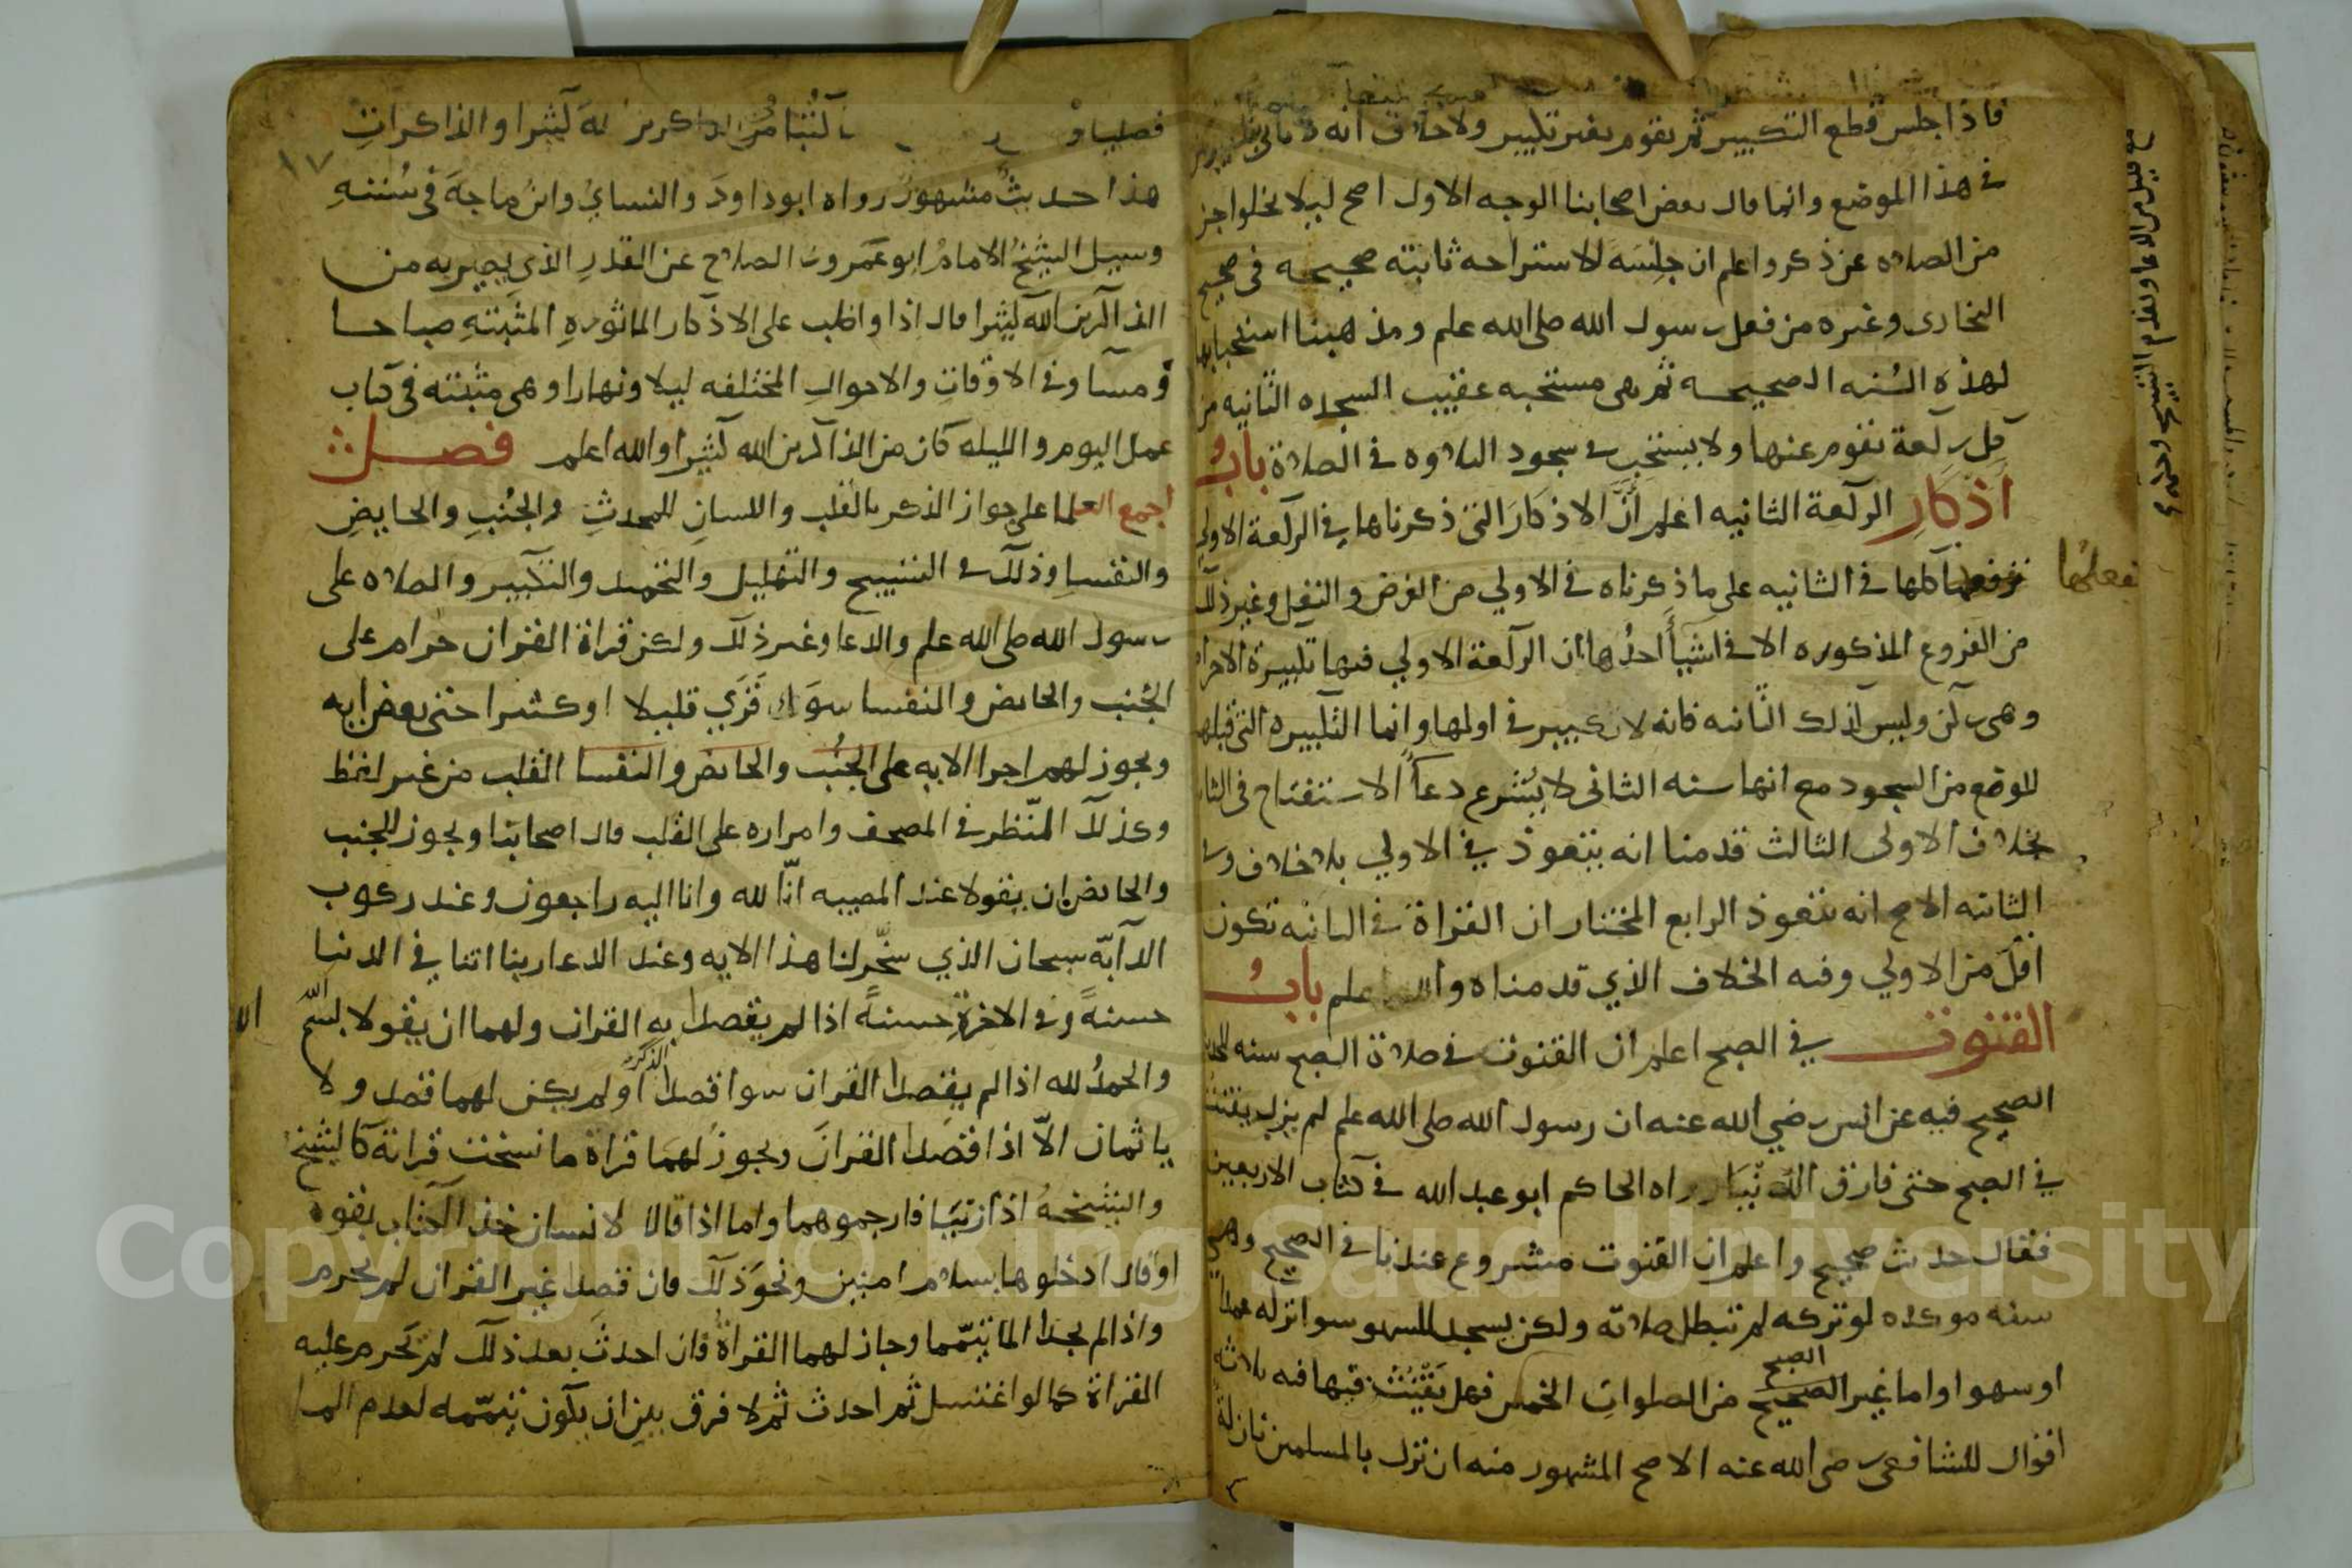 فاذا جلس قطع التكبير ثم يقوم بغير تكبير ولا خلاف انه لا ياتي
في هذا الموضع وانما قال بعض اصحابنا الوجه الاول اصح ليلا يخلوا جز
من الصلاه عن ذكر واعلم ان جلسه الاستراحه ثابته صحيحه في صحيح
البخاري وغيره من فعل رسول الله صلى الله علم ومذهبنا استحبابها
لهذه السُنه الصحيحه ثم هى مستحبه عقيب السجده الثانيه من
كل ركعة نقوم عنها ولا يستحب في سجود التلاوه في الصلاة بابُ
اذكار الركعة الثانيه اعلم انَّ الاذكار التى ذكرناها في الركعة الاولى
نفعلها كلها في الثانيه على ما ذكرناه في الاولي من الفرض والنفل وغير ذلك
نفعلُها
من الفروع المذكوره الا في اشيأ احدُها ان الركعة الاولي فيها تكبيرة الاحرام
وهى ركن وليس كذلك الثانيه فانه لا تكبير في اولها وانما التكبيره التى قبلها
للوضع من السجود مع انها سنه الثانى لا يشرع دعأ الاستفتاح فى الثانيه
بخلاف الاولى الثالث قدمنا انه يتعوذ في الاولي بلا خلاف وفي
الثانيه الاصح انه يتعوذ الرابع المختار ان القراة في الثانيه تكون
اقلّ من الاولي وفيه الخلاف الذي قدمناه والله اعلم بابُ
القنوت في الصبح اعلم ان القنوت في صلاة الصبح سنه للحديث
الصحيح فيه عن انس رضي الله عنه ان رسول الله صلى الله علم لم يزل يقنت
في الصبح حتى فارق الدنيا رواه الحاكم ابو عبد الله في كتاب الاربعين
فقال حديث صحيح واعلم ان القنوت مشروع عندنا في الصحيح وهي
سنه موكده لو تركه لم تبطل صلاته ولكن يسجد للسهو سوا تركه عمدا
او سهوا واما غير الصحيح من الصلوات الخمس فهل يَقْنُت فيها فيه ثلاثه
الصبح
اقوال للشافعى رضى الله عنه الاصح المشهور منه ان نزل بالمسلمين نازلة
فصليا
كُتبا من الذاكرين الله كثيرا والذاكرات
١٧
هذا حديثٌ مشهورٌ رواه ابو داودَ والنساي وابن ماجهَ في سُننهِ
وسيل الشيخُ الامامُ ابو عَمرو بن الصلاح عن القدرِ الذي يصير به من
الذاكرين الله كثيرا قال اذا واظب على الاذكار الماثورهِ المثبتهِ صباحا
ومسآ وفي الاوقاتِ والاحوالِ المختلفه ليلا ونهارا وهى مثبته في كتاب
عمل اليوم والليله كان من الذاكرين الله كثيرا والله اعلم فصل
اجمع العلما على جواز الذكر بالقلب واللسانِ للمحدثِ والجُنبِ والحايضِ
والنفسا وذلك في التسبيح والتهليل والتحميد والتكبير والصلاه على
رسول الله صلى الله علم والدعا وغير ذلك ولكن قراة القران حرام على
الجُنب والحايض والنفسا سوآ قرَي قليلا او كثيرا حتى بعض ايه
ويجوز لهم اجرا الايه على الجُنُب والحايض والنفسا القلب من غير لفظ
وكذلك النّظر في المصحف وامراره على القلب قال اصحابنا ويجوز للجنب
والحايض ان يقولا عند المصيبه انّا لله وانا اليه راجعون وعند ركوب
الدآبّه سبحان الذي سخّر لنا هذا الايه وعند الدعا ربنا اتنا في الدنيا
حسنهً وفي الاخرةِ حسنهً اذا لم يقصدا به القران ولهما ان يقولا بسم الله
والحمدُ لله اذا لم يقصدا القران سوا قصدا او لم يكن لهما قصد ولا
الذكر
ياثمان الاّ اذا قصدا القرانَ ويجوزُ لهمَا قراة ما نسخت قراته كالشيخ
والشيخهُ اذا زنيَا فارجموهما واما اذا قالا لانسان خذ الكتاب بقوة
او قالا ادخلوها بسلام امنين ونحوَ ذلك فان قصدا غير القران لم يحرم
واذا لم يجدا الما تيمّما وجاز لهما القراةُ فان احدثَ بعد ذلك لم تحرم عليه
القراة كما لو اغتسل ثم احدث ثم لا فرق بين ان يكون تيمّمه لعدم الما
Copyright © King Saud University